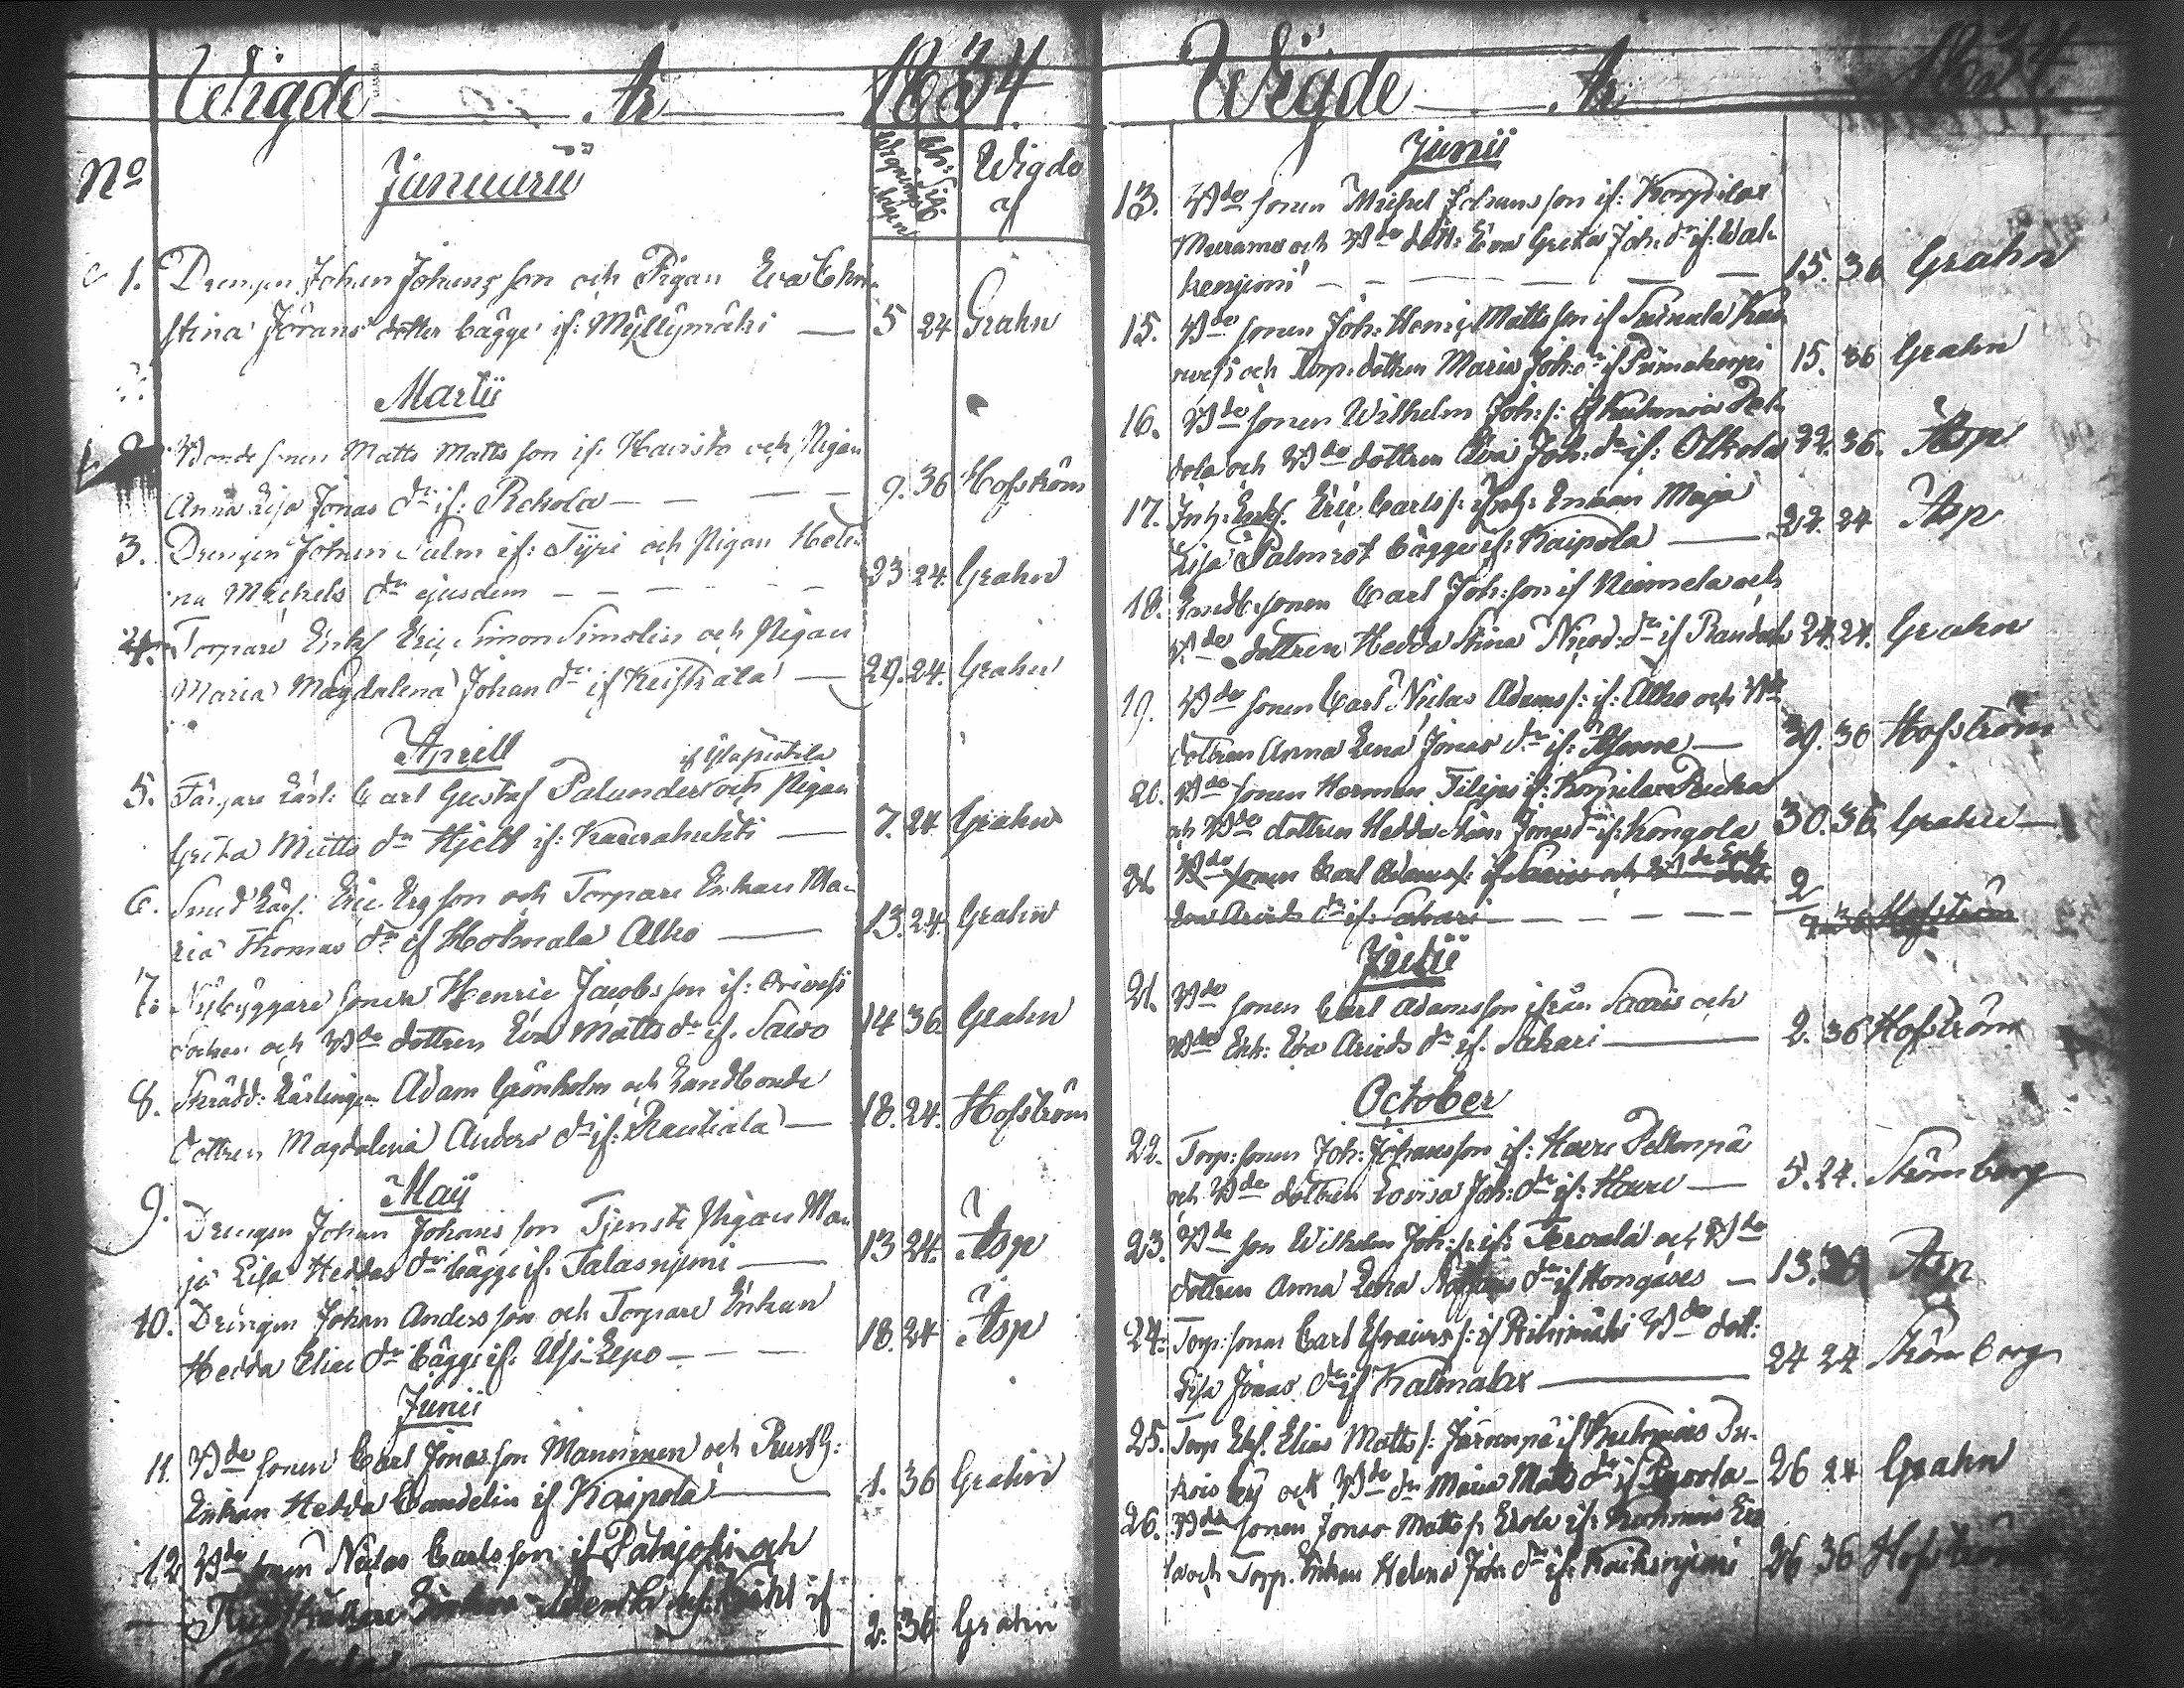 Wigde År 1834.
No
Januarii
Wignings dagen
Wigde af
1. Drengen Johan Johansson och Pigan Eva Chri-
stina Jörans dotter bägge if: Myllymäki — 5 24 Grahn
Martii
2. Bonde sonen Matts Matts son if: Havisto och Pigan
Anna Lisa Jonas dr if: Rekola — — — 9. 36 Hofström
3. Drengen Johan Palm if: Tyri och Pigan Hele-
na Michels dr ejusdem — — — 23 24. Grahn
4. Torpare Enkl Eric Simon Simolin och Pigan
Maria Magdalena Johan dr if — 29. 24. Grahn
Aprill
5. Färgare Lärl: Carl Gustaf Palander och Pigan
Greta Matts dr Hjelt if: — 7. 24. Grahn
6. Smed Lärl. Eric Ericson och Torpare Enkan Ma-
ria Thomas dr if Hohmala Alho — 13. 24. Grahn
7. Nybyggare sonen Henric Jacobsson if: Orivesi
Socken och Bde dottren Eva Matts dr if. Savo 14 36. Grahn
8. Skrädd: Lärlingen Adam Grönholm och Landbonde
dottren Magdalena Anders dr if: Rautiala — 18. 24. Hofström
Maij
9. Drengen Johan Johansson Tjenste Pigan Ma-
ja Lisa Heddas dr bägge if. Talasnjemi — 13 24. Asp
10. Drengen Johan Andersson och Torpare Enkan
Hedda Elias dr bägge if. Usi-Lepo — — — 18. 24 Asp
Junii
11. Bde sonen Carl Jonasson Manninen och Rusth:
Enkan Hedda Candelin if Kaipola — 1. 36 Grahn
12 Bde sonen Niclas Carlsson if Patajoki och
if
2. 36. Grahn
Wigde År 1834.
Junii
13. Bde sonen Michel Johansson if: Korpilax
Meerames och Bde dott: Eva Greta Joh: dr if: Wal-
kenjemi — — — 15. 36 Grahn
15. Bde sonen Joh: Henric Mattsson if
och Torp: dottren Maria Joh: dr if 15. 36 Grahn
16. Bde sonen Wilhelm Joh: s: if Kuhmois Pel-
dola och Bde dottren Eva Joh: dr if: Olkola 22. 36. Asp
17. Inh: Enkl. Eric Carls s: Inh: Enkan Maja
Lisa Palmrot bägge if: Kaipola — 22. 24 Asp
18. Landb: sonen Carl Joh: son if Niemela och
Bde dottren Hedda Stina Nicod: dr if 24. 24. Grahn
19. Bde sonen Carl Niclas Adams s: if: Alho och Bde
dottren Anna Lena Jonas dr if: — 29. 36 Hofström
20. Bde sonen Herman Filips: if: Korpilax
och Bde dottren Hedda Stina Jonas dr if: Kongola 30. 36. Grahn —
21. Bde sonen Carl Adams s: if Saaris och Bde Enk
dr if: Sakari — — — 2/7. 36 Hofström
Julii
21. Bde sonen Carl Adamsson ifrån Saaris och
Bde Enk: Eva Arvids dr if. Sakari — 2. 36 Hofström
October
22. Torp: sonen Joh: Johansson if: Haere Peltompä
och Bde dottren Lovisa Joh: dr if: Haere — 5. 24. Strömberg
23. Bde son Wilhelm Joh: s: if: Tervala och Bde
dottren Anna Lena dr if Hongases — 13. 36 Asp
24. Torp: sonen Carl Efraims s: if Riihimäki Bde dott:
Lisa Jonas dr if Kalmalax — 24 24 Strömberg
25. Torp Ekl. Elias Matts s: Järvenpä if Kuhmois
by och Bde dr Maria Matts dr if — 26 24 Grahn
26. Bde sonen Jonas Matts s: Erola if: Kuhmois Ero-
la och Torp. Enkan Helena Joh: dr if: 26 36 Hofström